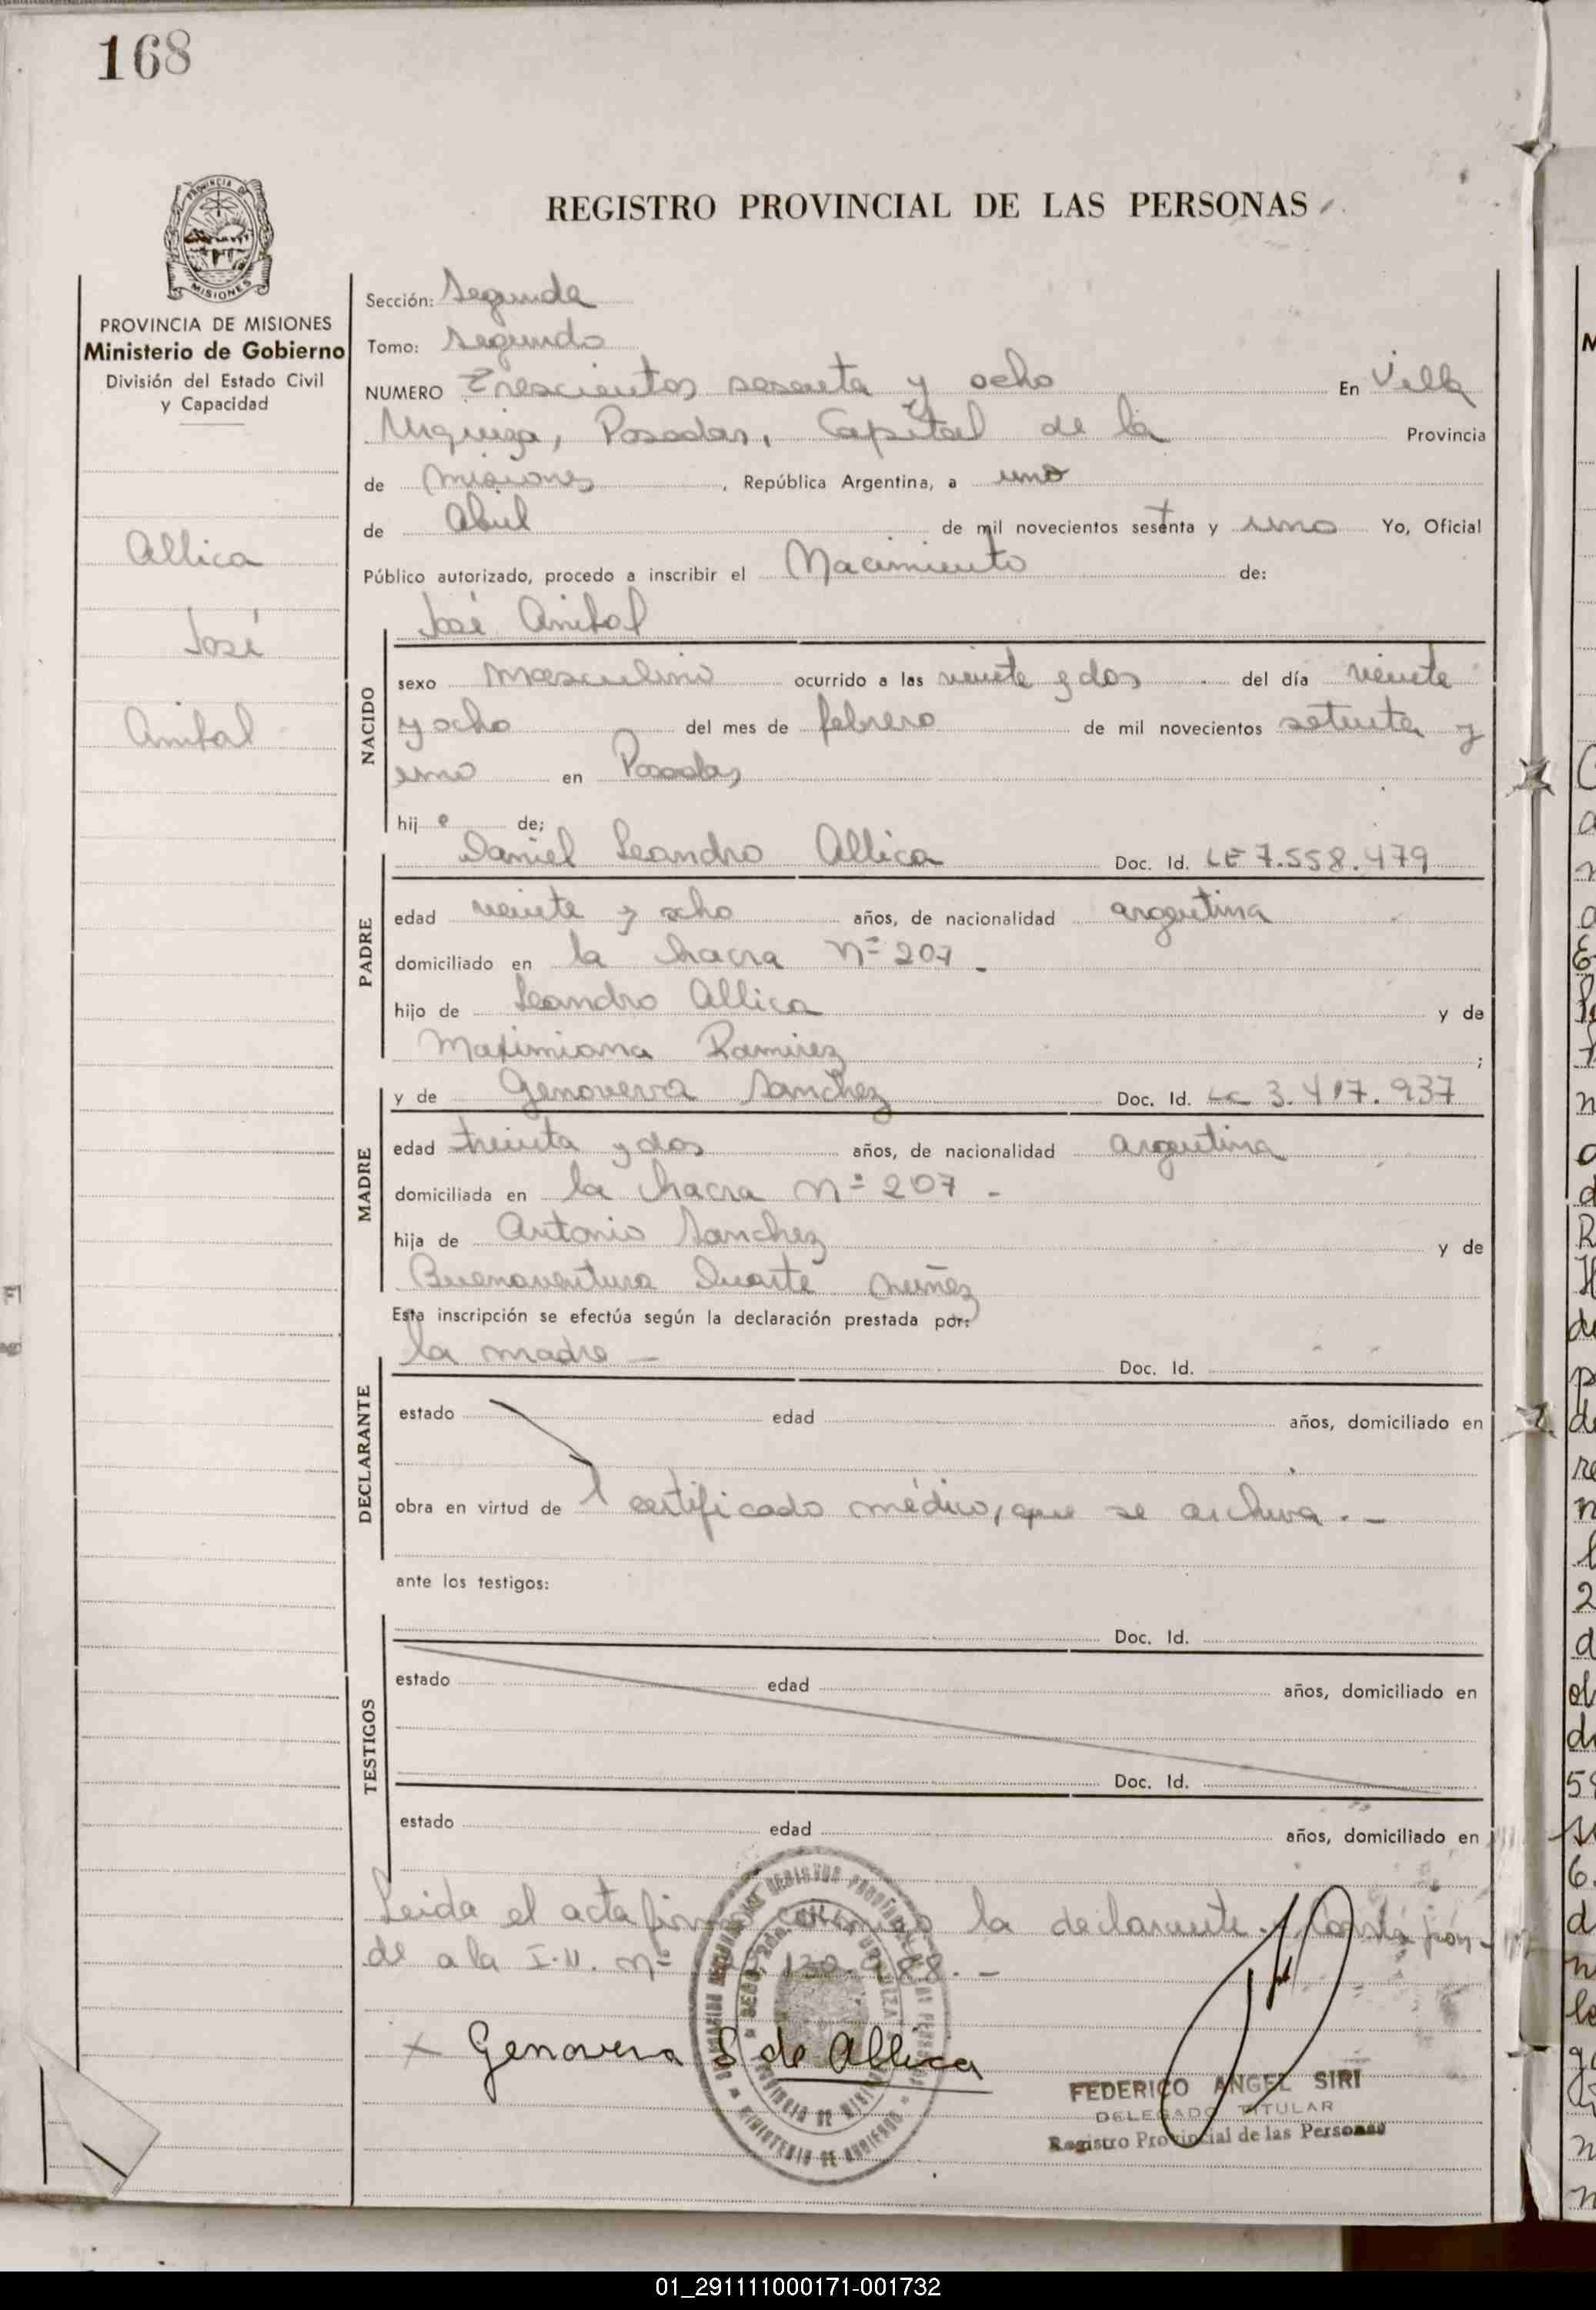 168
REGISTRO PROVINCIAL DE LAS PERSONAS
PROVINCIA DE
MISIONES
PROVINCIA DE MISIONES
Ministerio de Gobierno
División del Estado Civil
y Capacidad
Allica
José
Anibal
Sección: Segunda
Tomo: Segundo
NUMERO Trescientos sesenta y ocho En Villa
Urquiza, Posadas, Capital de la Provincia
de Misiones, República Argentina, a uno
de Abril de mil novecientos setenta y uno Yo, Oficial
Público autorizado, procedo a inscribir el Nacimiento de:
José Anibal
NACIDO
sexo masculino ocurrido a las veinte y dos del día veinte
y ocho del mes de febrero de mil novecientos setenta y
uno en Posadas
hij o de;
Daniel Leandro Allica Doc. Id. LE 7.558.479
PADRE
edad veinte y ocho años, de nacionalidad argentina
domiciliado en la chacra Nº 207 -
hijo de Leandro Allica y de
Maximiana Ramirez ;
y de Genoveva Sanchez Doc. Id. LC 3.417.937
MADRE
edad treinta y dos años, de nacionalidad argentina
domiciliada en la chacra Nº 207 -
hija de Antonio Sanchez y de
Buenaventura Duarte Nuñez
Esta inscripción se efectúa según la declaración prestada por:
la madre - Doc. Id.
DECLARANTE
estado edad años, domiciliado en
obra en virtud de certificado médico, que se archiva. -
ante los testigos:
Doc. Id.
TESTIGOS
estado edad años, domiciliado en
Doc. Id.
estado edad años, domiciliado en
Leida el acta firma conmigo la declarante.
de a la I.N. nº
Genoveva S de Allica
FEDERICO ANGEL SIRI
DELEGADO TITULAR
Registro Provincial de las Personas
01_291111000171-001732